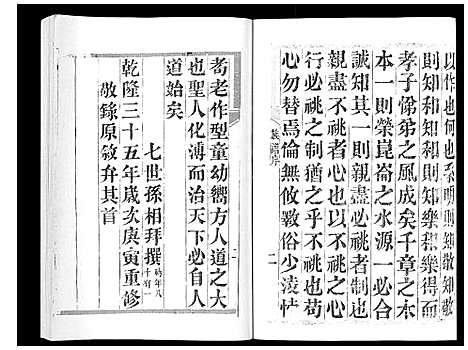 以作也何也系明則知敬知敬
則知和知和則知樂得而
孝子悌弟之風成矣千章之木
本一則榮崑崙之水源一必合
誠知其一則親盡必祧者制也
親盡不祧者心也以不祧之心
行必祧之制猶之乎不祧也苟
心勿替焉倫無攸斁俗少淩悖
族譜序
二
耇老作聖童幼嚮方人道之大
也聖人化溥而治天下必自人
道始矣
七世孫相拜撰
時年八十有一
乾隆三十五年歲次庚寅重修
敬錄原敘弁其首